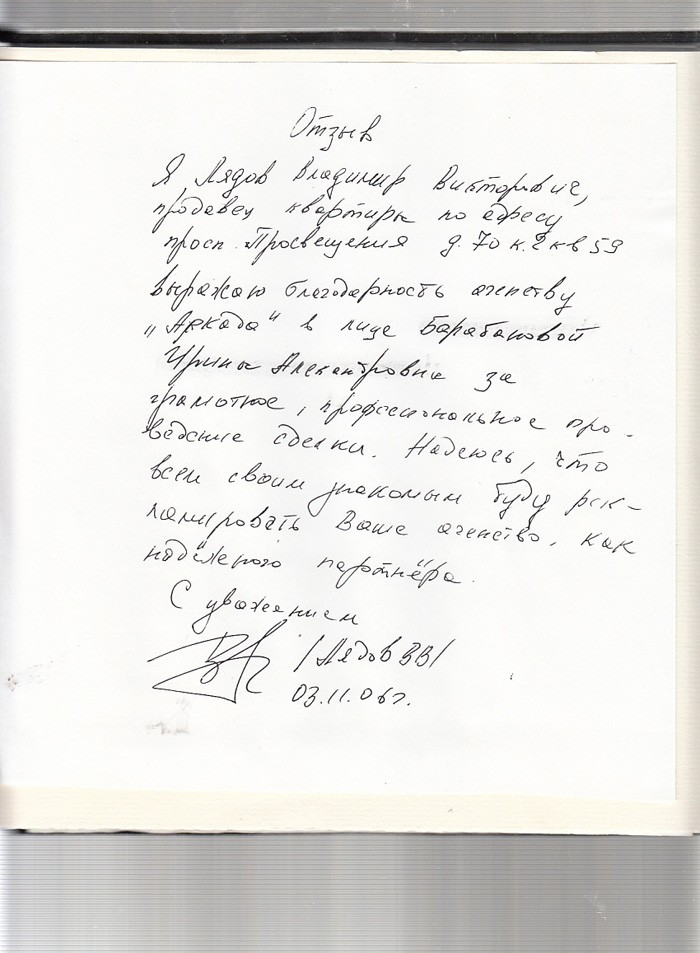 Отзыв
Я Лядов Владимир Викторович,
продавец квартиры по адресу
просп. Просвещения д. 70 к. 2 кв 59
выражаю благодарность агенству
„Аркада" в лице Барабановой
Ирины Александровны за
грамотное, профессиональное про-
ведение сделки. Надеюсь, что
всем своим знакомым буду рек-
ламировать Ваше агенство, как
надёжного партнёра.
С уважением
/Лядов ВВ/
03.11.06г.